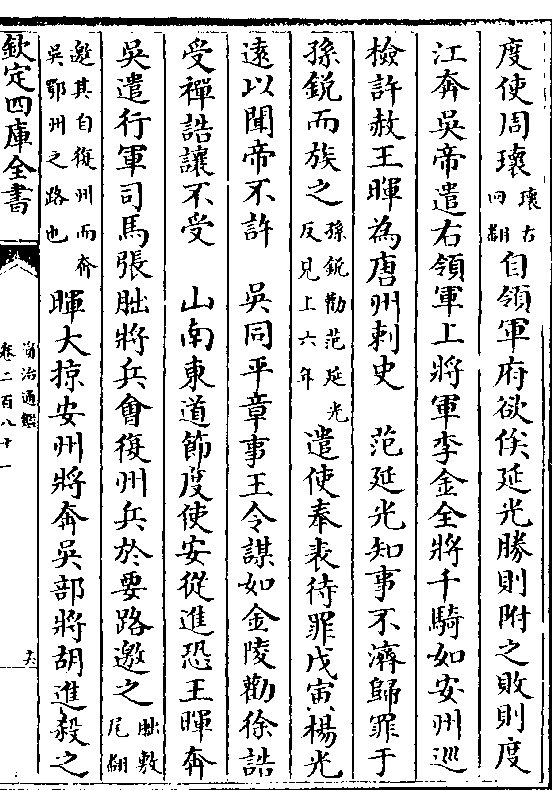 度使周瓌瓌古回翻自領軍府欲俟延光勝則附之敗則度
江奔吳帝遣右領軍上將軍李金全將千騎如安州巡
檢許赦王暉為唐州刺史　范延光知事不濟歸罪于
孫鋭而族之孫鋭勸范延光反見上六年遣使奉表待罪戊寅楊光
遠以聞帝不許　吳同平章事王令謀如金陵勸徐誥
受禪誥讓不受　山南東道節度使安從進恐王暉奔
吳遣行軍司馬張朏將兵會復州兵於要路邀之朏敷尾翻
邀其自復州而奔吳鄂州之路也暉大掠安州將奔吳部將胡進殺之
欽定四庫全書
資治通鑑
卷二百八十一